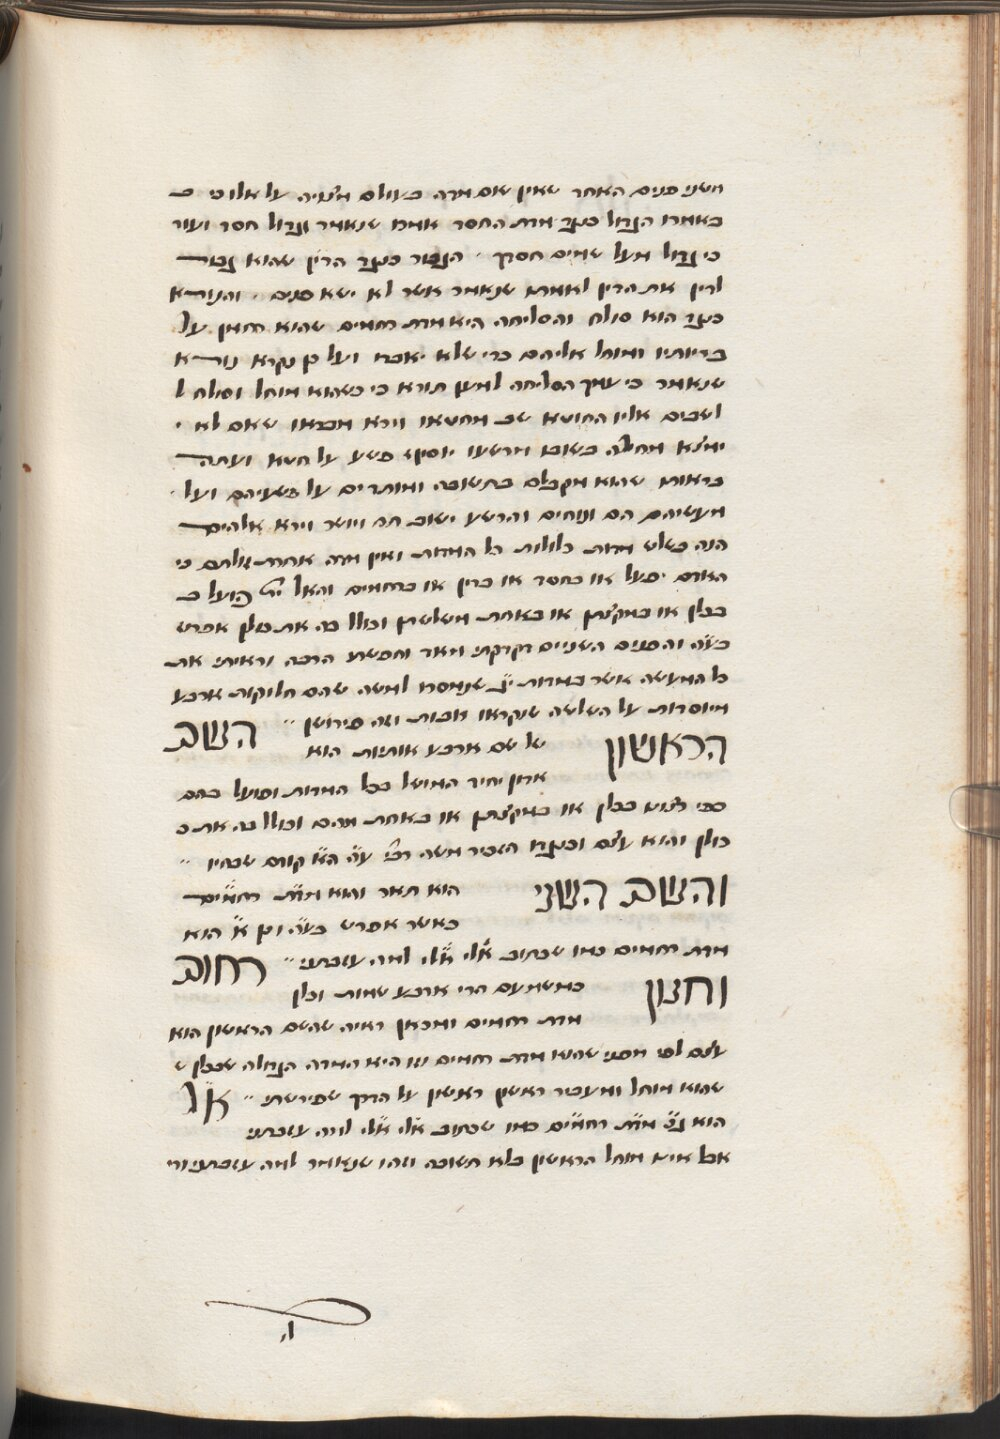 משני פנים האחר שאין שום מדה בעולם מצויה על אלו כי כ
באמרו הגדול כנגד מדת החסד אמרו שנאמר וגדול חסד ועוד
כי גדול מעל שמים חסדך הגבור כנגד הדין שהוא גבור
לדין את הדין לאמתו שנאמר אשר לא ישא פנים והנורא
כנגד הוא סולח והסליחה היא מדת רחמים שהוא רחמן על
בריותיו ומוחל אליהם כדי שלא יאבדו ועל כן נקרא נורא
שנאמר כי עמך הסליחה למען תורא כי כשהוא מוחל וסולח ל
לשבים אליו החוטא שב מחטאו וירא מבראו שאם לא י
ימצא מחילה בשובו מרשעו יוסיף פשע על חטא ועתה
בראותו שהוא מקבלם בתשובה ומותרים על פשעיהם ועל
מעשיהם הם ונוחים והרשע ישוב תם ויושר וירא אלהים
הנה בשלש מדות כלולות כל המדות ואין מדה אחת זולתם כי
האדם יפעל או בחסד או בדין או ברחמים והאל ית׳ הפועל ב
בכלן או במקצתן או באחת משלשתן וכולל בה את כולן אפרש
בע״ה והפנים השניים דקדקתי מאד וחפשתי הרבה וראיתי את
כל המעשה אשר במדות י״ג שנמסרו למשה שהם חלוקות ארבע
מיוסדות על השלשה שנקראו אבות וזה פירושן השם
הראשון של שם ארבע אותיות הוא
אדון יחיד המושל בכל המדות ופועל בהם
כפי רצונו בכלן או במקצתן או באחת מהם וכולל בה את כ
כולן והוא עצם וכנגדו הזכיר משה רבי׳ ע״ה הא קודם שבהיו
והשם השני הוא תאר והוא מדת רחמים
כאשר אפרש בע״ה וכן א׳ הוא
מדת רחמים כמו שכתוב אלי אלי למה עזבתני רחום
וחנון כמשמעם הרי ארבע שמות וכלן
מדת רחמים ומכאן ראיה שהשם הראשון הוא
עצם לפי מפני שהוא מדת רחמים וזו היא המדה הגדולה שבכלן ש
שהוא מוחל ומעביר ראשון ראשון על הדרך שפירשתי אל
הוא ג״כ מדת רחמים כמו שכתוב אלי אלי למה עזבתני
אבל אינו מוחל הראשון בלא תשובה וזהו שנאמר למה עזבתני